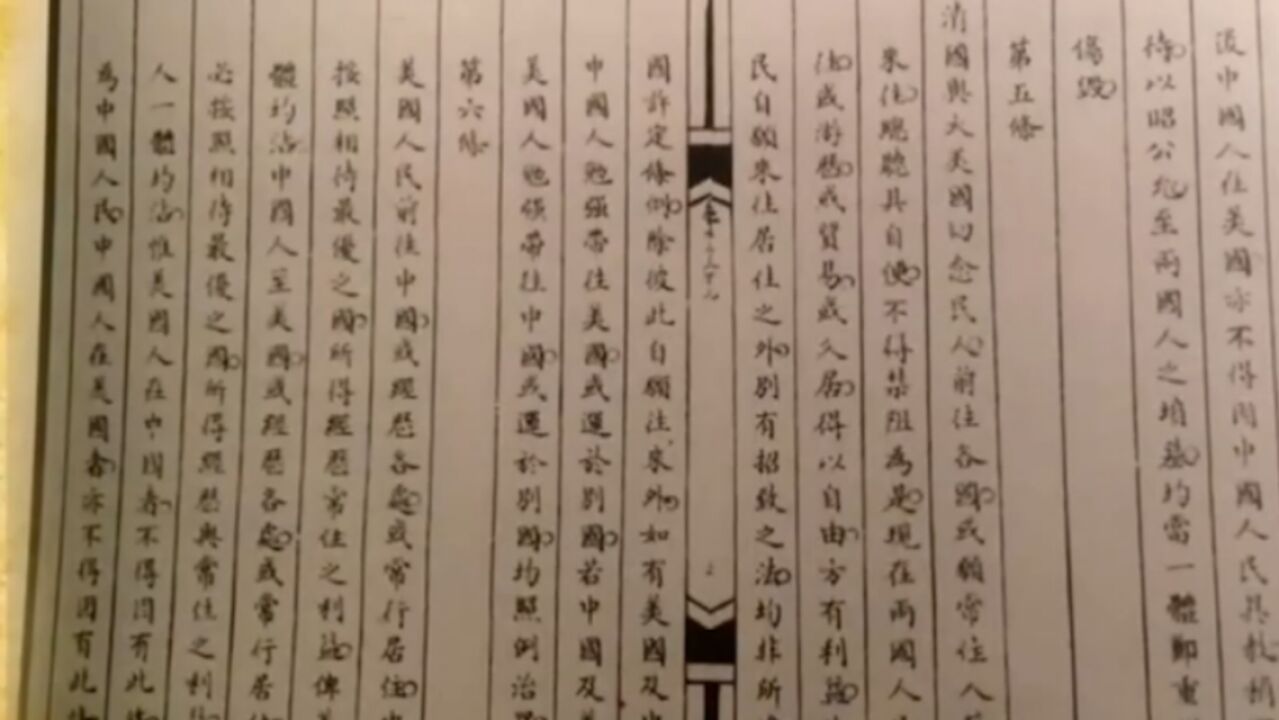 後中國人在美國亦不得因中國人民異教稍
待以昭公允至兩國人之墳墓均當一體鄭重
傷毀
第五條
清國與大美國切念民人前往各國或願常住入
來往聽其自便不得禁阻為是現在兩國人
法或游歷或貿易或久居得以自由方有利益
民自願來往居住之外別有招致之法均非所
國許定條例除彼此自願往來外如有美國及
中國人勉強帶往美國或運於別國若中國及
美國人勉強帶往中國或運於別國均照例治
第六條
美國人民前往中國或經歷各處或常行居住
按照相待最優之國所得經歷常住之利益俾
體均沾中國人至美國或經歷各處或常行居
必按照相待最優之國所得經歷與常住之利
人一體均沾惟美國人在中國者不得因有此
為中國人民中國人在美國者亦不得因有此